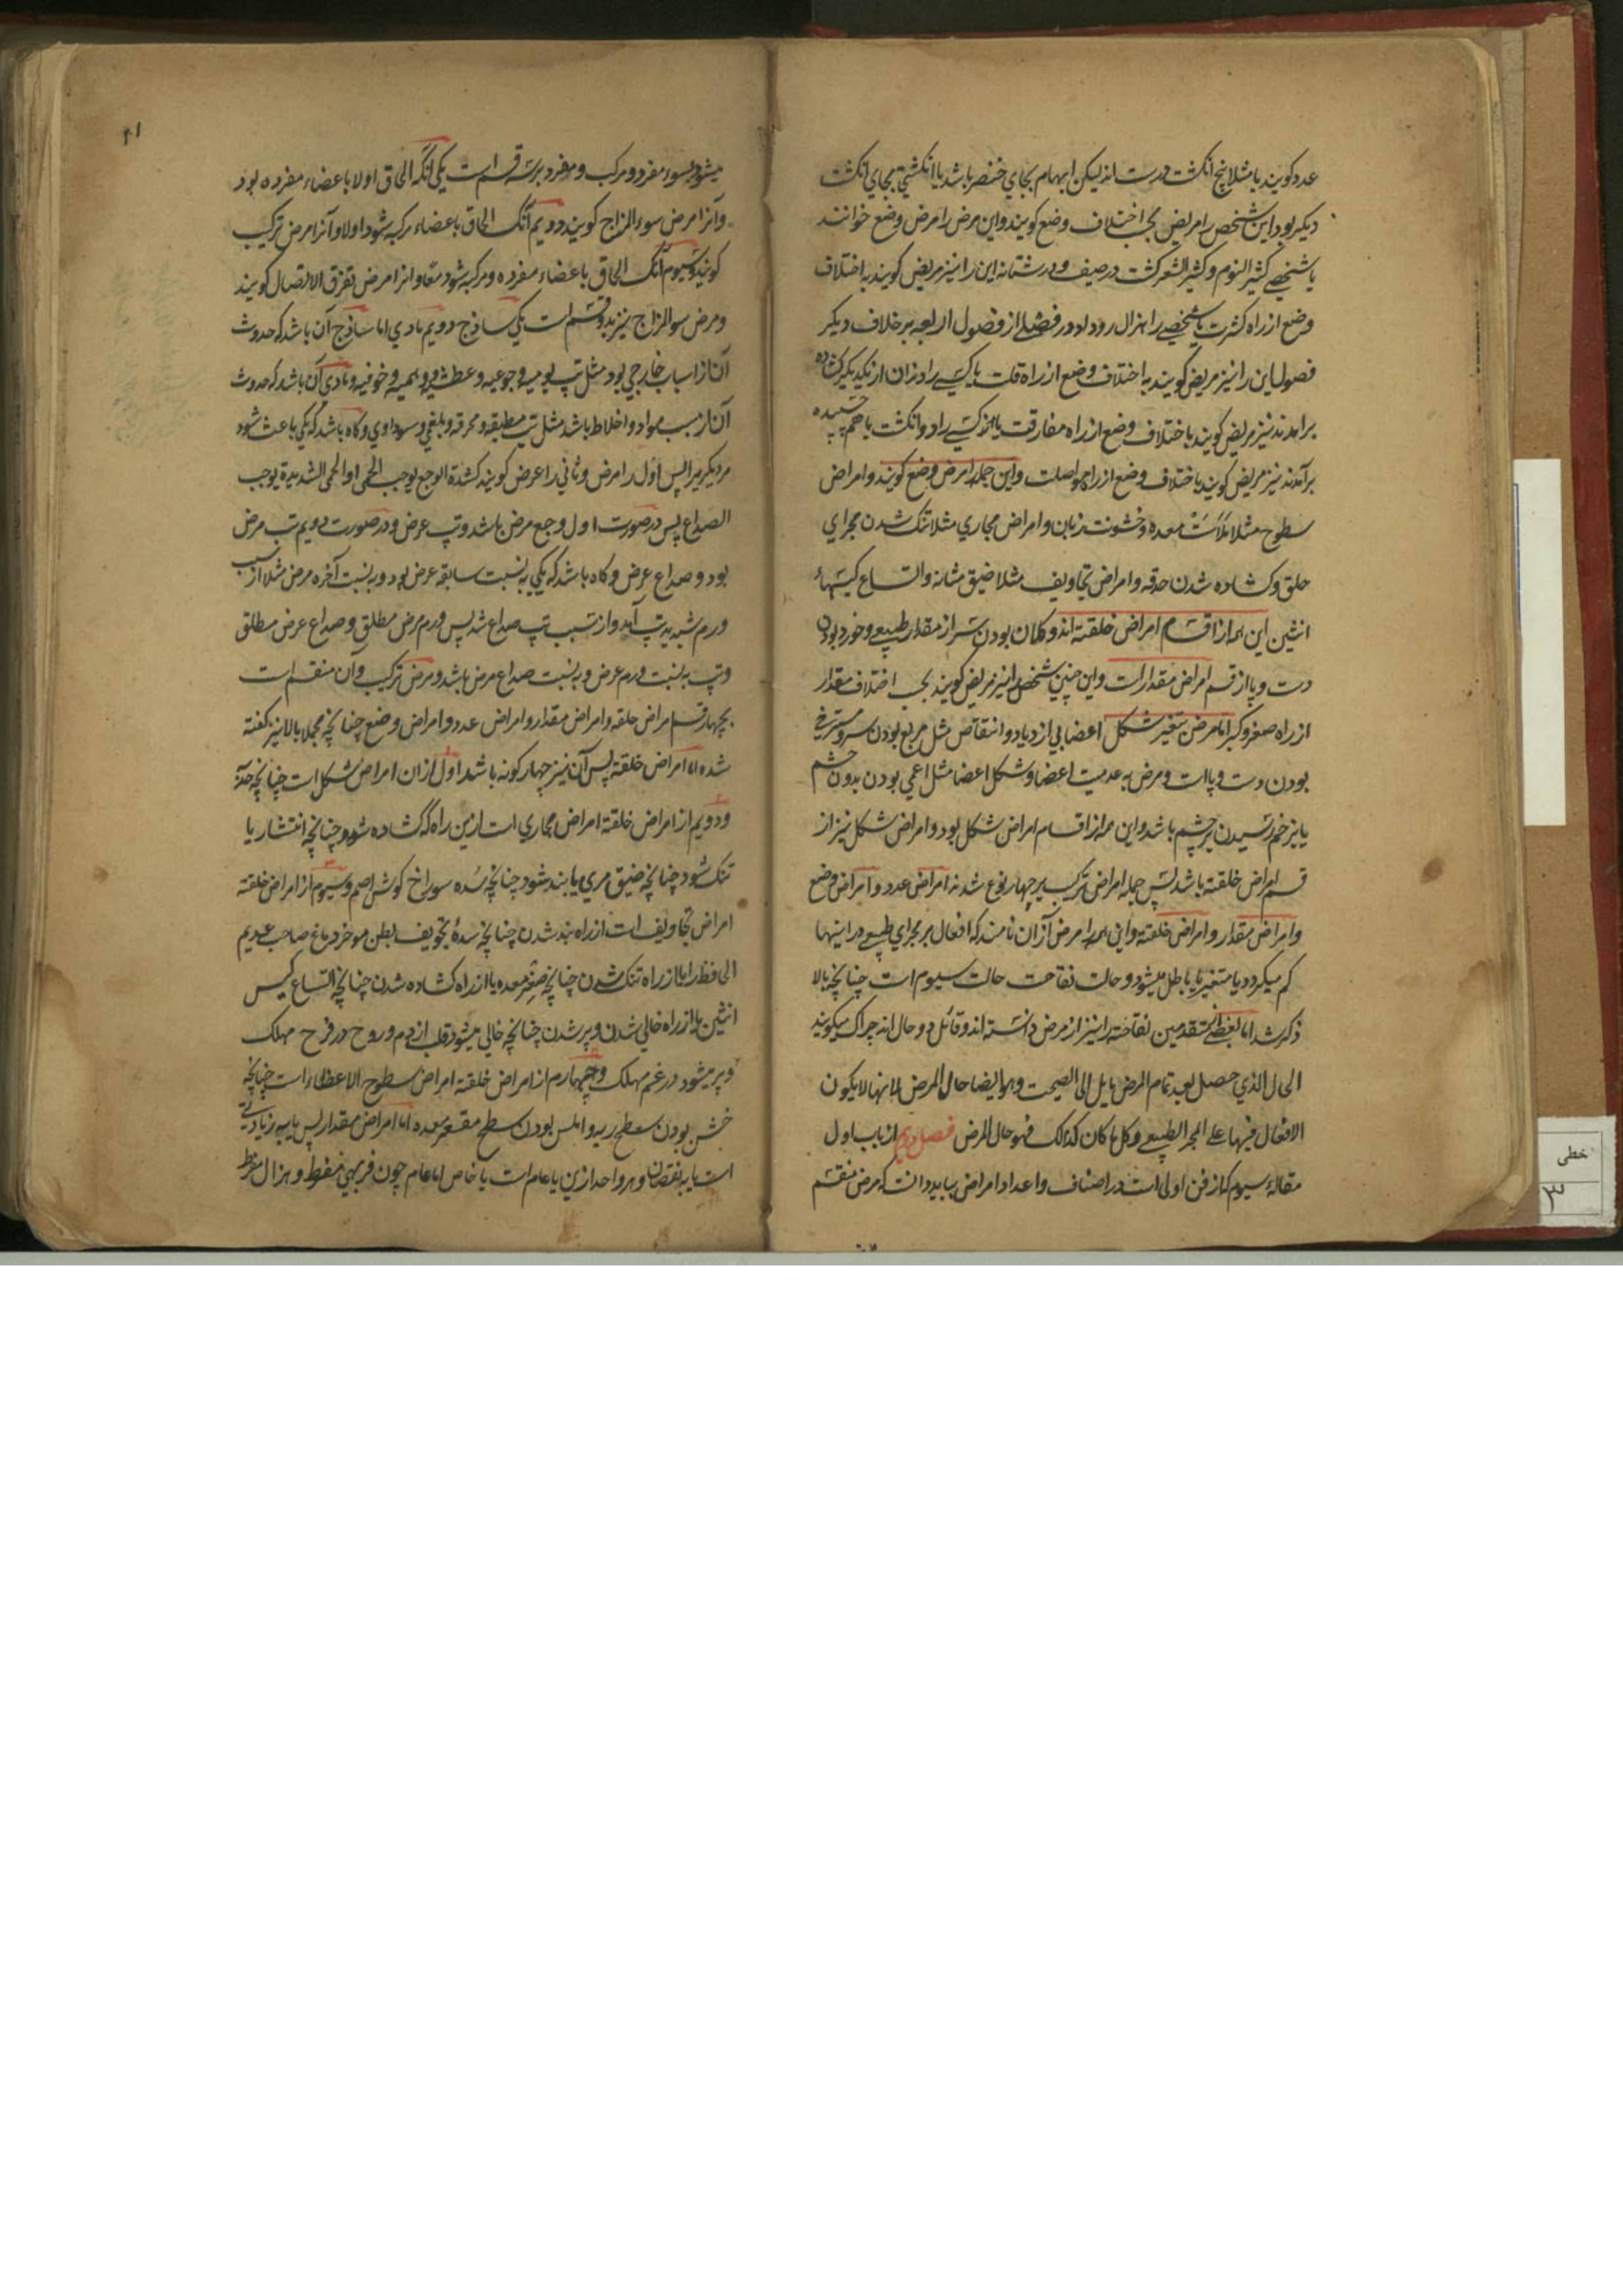 عدد گویند یا مثلا پنج انگشت درست اند لیکن ابهام بجای خنصر باشد یا انگشتی بجای انگشت
دیگر بود این شخص را مریض بحسب اختلاف وضع گویند و این مرض را مرض وضع خوانند
یا شخصے کثیر النوم و کثیر الشعر گشت در صیف و در شتا نه این را نیز مریض گویند به اختلاف
وضع از راه کثرت یا شخصے را هزال رو داد در فصلے از فصول اربعه بر خلاف دیگر
فصول این را نیز مریض گویند به اختلاف وضع از راه قلت یا کسے را دندان از یکدیگر کشاده
برآمدند نیز مریض گویند باختلاف وضع از راه مفارقت یا کسے را دو انگشت با هم چسپیده
برآمدند نیز مریض گویند باختلاف وضع از راه مواصلت و این جمله را مرض وضع گویند و امراض
سطوح مثلا ملاست معده و خشونت زبان و امراض مجاری مثلا تنگ شدن مجرای
حلق و کشاده شدن حدقه و امراض تجاویف مثلا ضیق مثانه و اتساع کیسهاء
انثیین این همه از اقسام امراض خلقته اند و کلان بودن سر از مقدار طبیعے و خورد بودن
دست و پا از قسم امراض مقدار است و این چنین شخص را نیز مریض گویند بحسب اختلاف مقدار
از راه صغر و کبر اما مرض تغیر شکل اعضا بی ازدیاد و انتقاص مثل مربع بودن سر و مسترخی
بودن دست و پا است و مرض به عدمیت اعضا و شکل اعضا مثل اعمی بودن بدون چشم
یا بزخم رسیدن بر چشم باشد و این همه از اقسام امراض شکل بود و امراض شکل نیز از
قسم امراض خلقته باشد پس جمله امراض ترکیب بر چهار نوع شدند امراض عدد و امراض وضع
و امراض مقدار و امراض خلقته و این همه را مرض ازان نامند که افعال بر مجرای طبیعے در اینها
کم میگردد یا متغیر یا باطل میشود و حالت نقاهت حالت سیوم است چنانچه بالا
ذکر شد اما بعضے متقدمین نقاهته را نیز از مرض دانسته اند و قائل دو حال اند چراکه میگویند
الحال الذی حصل بعد تمام المرض مایل الی الصحت و هو ایضا حال المرض لانها لا یکون
الافعال فیها علے المجر الطبیعے و کل ما کان کذلک فهو حال المرض فصل دویم از باب اول
مقاله سیوم که از فن اولی است در اصناف و اعداد امراض بباید دانست که مرض منقسم
۲۱
میشود بسوء مفرد و مرکب و مفرد بر سه قسم است یکی آنکه الحاق اولا باعضاء مفرده بود
و آنرا مرض سوء المزاج گویند دویم آنکه الحاق باعضاء مرکبه شود اولا و آنرا مرض ترکیب
گویند و سیوم آنکه الحاق باعضاء مفرده و مرکبه شود معا و آنرا مرض تفرق الاتصال گویند
و مرض سوالمزاج نیز بدو قسم است یکی ساذج دویم مادی اما ساذج آن باشد که حدوث
آن از اسباب خارجی بود مثل تپ یومیه و جوعیه و عطشیه و همیه و خوفیه و مادی آن باشد که حدوث
آن از سبب مواد و اخلاط باشد مثل تپ مطبقه و محرقه و بلغمی و سوداوی و گاه باشد که یکی باعث شود
مر دیگری را پس اول را مرض و ثانی را عرض گویند کشدة الوجع یوجب الحمی او الحمی الشدیدة یوجب
الصداع پس در صورت اول وجع مرض باشد و تپ عرض و در صورت دویم تپ مرض
بود و صداع عرض و گاه باشد که یکی به نسبت سابقه عرض بود و به نسبت آخره مرض مثلا از سبب
ورم شدید تپ آمد و از سبب تپ صداع شد پس ورم مرض مطلق و صداع عرض مطلق
و تپ به نسبت ورم عرض و به نسبت صداع مرض باشد و مرض ترکیب و آن منقسم است
بچهار قسم امراض خلقه و امراض مقدار و امراض عدد و امراض وضع چنانچه مجملا بالا نیز گفته
شده اما امراض خلقته پس آن نیز چهار گونه باشد اول ازان امراض شکل است چنانچه
و دویم از امراض خلقته امراض مجاری است ازین راه که گشاده شود چنانچه انتشار یا
تنگ شود چنانچه ضیق مری یا بند شود چنانچه سده سوراخ گوش اصم و سیوم از امراض خلقته
امراض تجاویف است از راه بند شدن چنانچه سدهٔ تجویف بطن موخر دماغ صاحب عدیم
الحافظه را یا از راه تنگ شدن چنانچه صغر معده یا از راه کشاده شدن چنانچه اتساع کیس
انثیین یا از راه خالی شدن و پر شدن چنانچه خالی میشود قلب از دم و روح در فرح مهلک
و پر میشود در غم مهلک و چهارم از امراض خلقته امراض سطوح الاعضاء است چنانچه
خشن بودن سطح ریه و املس بودن سطح مقعر معده اما امراض مقدار پس یا به زیادتی
است یا به نقصان و هر واحد ازین یا عام است یا خاص اما عام چون فربهی مفرط و هزال مفرط
خطی
۳